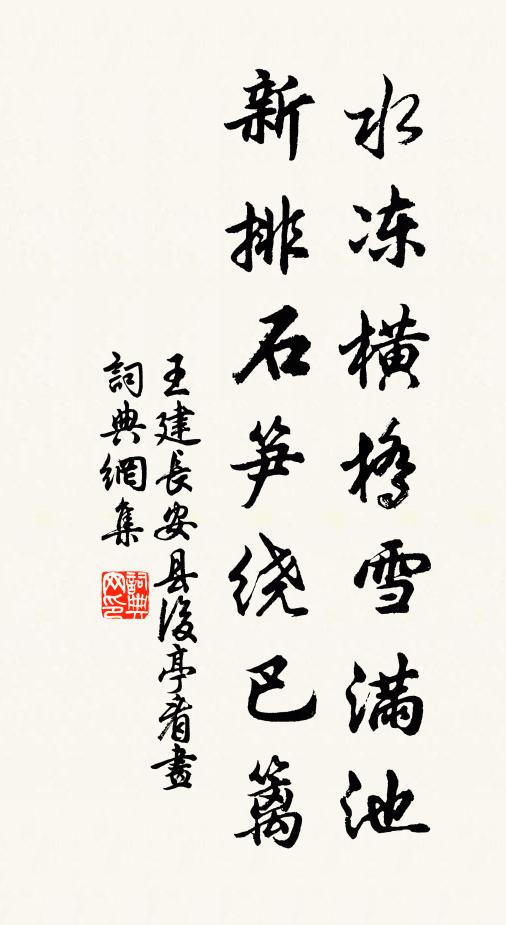 水冻横桥雪满池
新排石笋绕巴篱
王建長安县後亭看畫
詞典網集
詞典网印